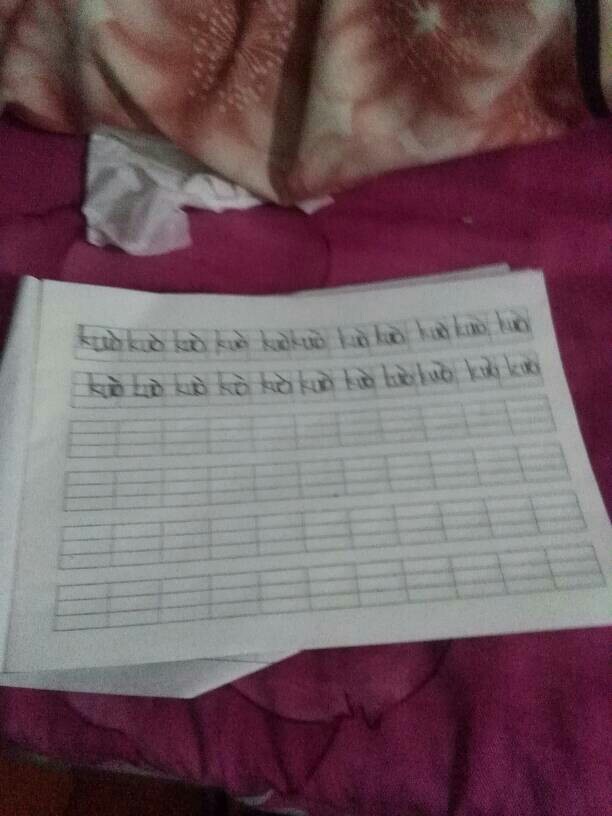 kuò kuò kuò kuò kuò kuò kuò kuò kuò kuò kuò
kuò kuò kuò kò kuò kuò kuò kuò kuò kuò kuò